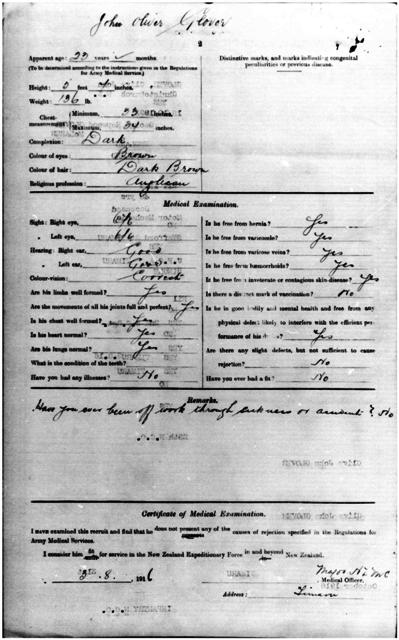 John Oliver Glover
2
Apparent age: 22 years months
(To be determined according to the instructions given in the Regulations for Army Medical Service.)
Height: feet inches.
Weight: 136 lb.
Chest measurement: Minimum, inches.
Maximum, 34 inches.
Complexion: Dark
Colour of eyes: Brown
Colour of hair: Dark Brown
Religious profession: Anglican
Distinctive marks, and marks indicating congenital peculiarities or previous disease.
Medical Examination.
Sight: Right eye, 6/6
Left eye, 6/6
Hearing: Right ear, Good
Left ear, Good
Colour-vision: Correct
Are his limbs well formed? Yes
Are the movements of all his joints full and perfect? Yes
Is his chest well formed? Yes
Is his heart normal? Yes
Are his lungs normal? Yes
What is the condition of the teeth?
Have you had any illnesses? No
Is he free from hernia? Yes
Is he free from varicocele? Yes
Is he free from varicose veins? Yes
Is he free from hæmorrhoids? Yes
Is he free from inveterate or contagious skin-disease? Yes
Is there a distinct mark of vaccination? No
Is he in good bodily and mental health and free from any physical defect likely to interfere with the efficient performance of his Yes
Are there any slight defects, but not sufficient to cause rejection? No
Have you ever had a fit? No
Remarks.
Have you ever been off work through sickness or accident? No
Certificate of Medical Examination.
I have examined this recruit and find that he does not present any of the causes of rejection specified in the Regulations for Army Medical Services.
I consider him fit for service in the New Zealand Expeditionary Force in and beyond New Zealand.
3.8.1916
Major NZMC
Medical Officer.
Address: Timaru